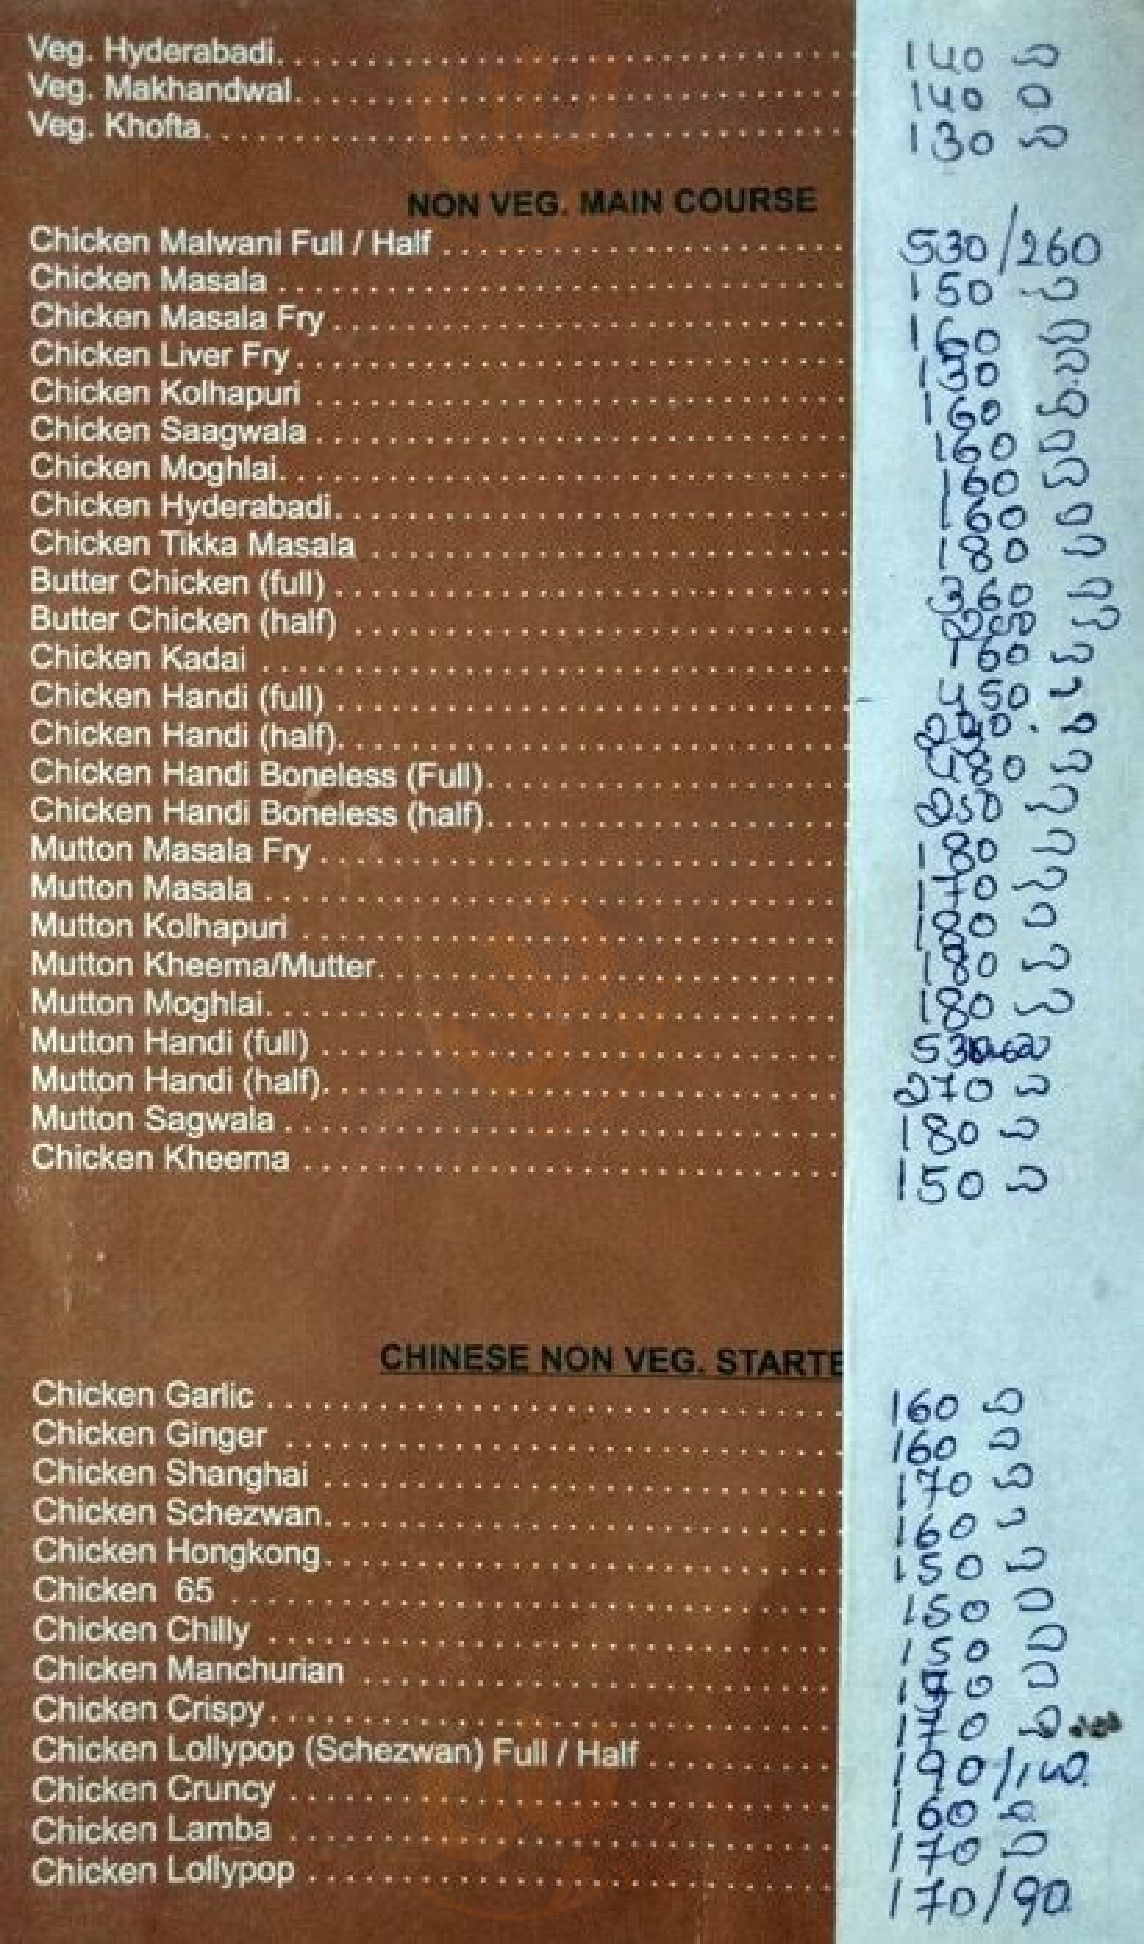 Veg. Hyderabadi. 140
Veg. Makhandwal. 140
Veg. Khofta. 130
NON VEG. MAIN COURSE
Chicken Malwani Full / Half 530/260
Chicken Masala 150
Chicken Masala Fry 160
Chicken Liver Fry 130
Chicken Kolhapuri 160
Chicken Saagwala 160
Chicken Moghlai. 160
Chicken Hyderabadi. 160
Chicken Tikka Masala 180
Butter Chicken (full) 360
Butter Chicken (half)
Chicken Kadai 160
Chicken Handi (full) 450
Chicken Handi (half).
Chicken Handi Boneless (Full). 480
Chicken Handi Boneless (half). 250
Mutton Masala Fry 180
Mutton Masala 170
Mutton Kolhapuri 180
Mutton Kheema/Mutter. 180
Mutton Moghlai. 180
Mutton Handi (full) 530
Mutton Handi (half). 270
Mutton Sagwala 180
Chicken Kheema 150
CHINESE NON VEG. STARTE
Chicken Garlic 160
Chicken Ginger 160
Chicken Shanghai 170
Chicken Schezwan. 160
Chicken Hongkong. 150
Chicken 65 150
Chicken Chilly 150
Chicken Manchurian
Chicken Crispy. 170
Chicken Lollypop (Schezwan) Full / Half 190/
Chicken Cruncy 160
Chicken Lamba 170
Chicken Lollypop 170/90